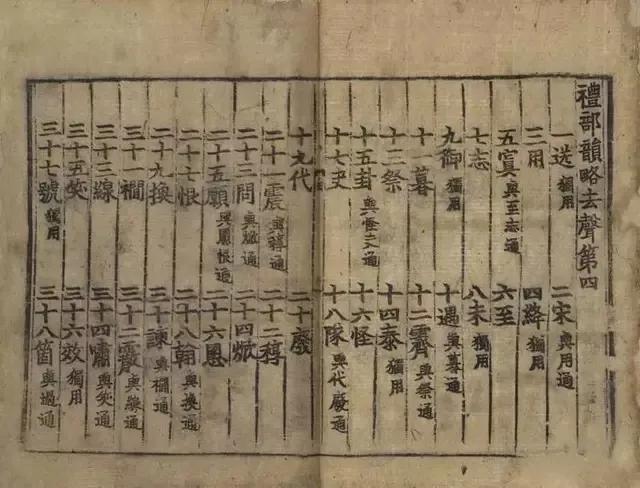 禮部韻略去聲第四
一送獨用 二宋與用通
三用 四絳獨用
五寘與至志通 六至
七志 八未獨用
九御獨用 十遇與暮通
十一暮 十二霽與祭通
十三祭 十四泰獨用
十五卦與怪夬通 十六怪
十七夬 十八隊與代廢通
十九代 二十廢
二十一震與稕通 二十二稕
二十三問與焮通 二十四焮
二十五願與慁恨通 二十六慁
二十七恨 二十八翰與換通
二十九換 三十諫與襉通
三十一襉 三十二霰與線通
三十三線 三十四嘯與笑通
三十五笑 三十六效獨用
三十七號獨用 三十八箇與過通